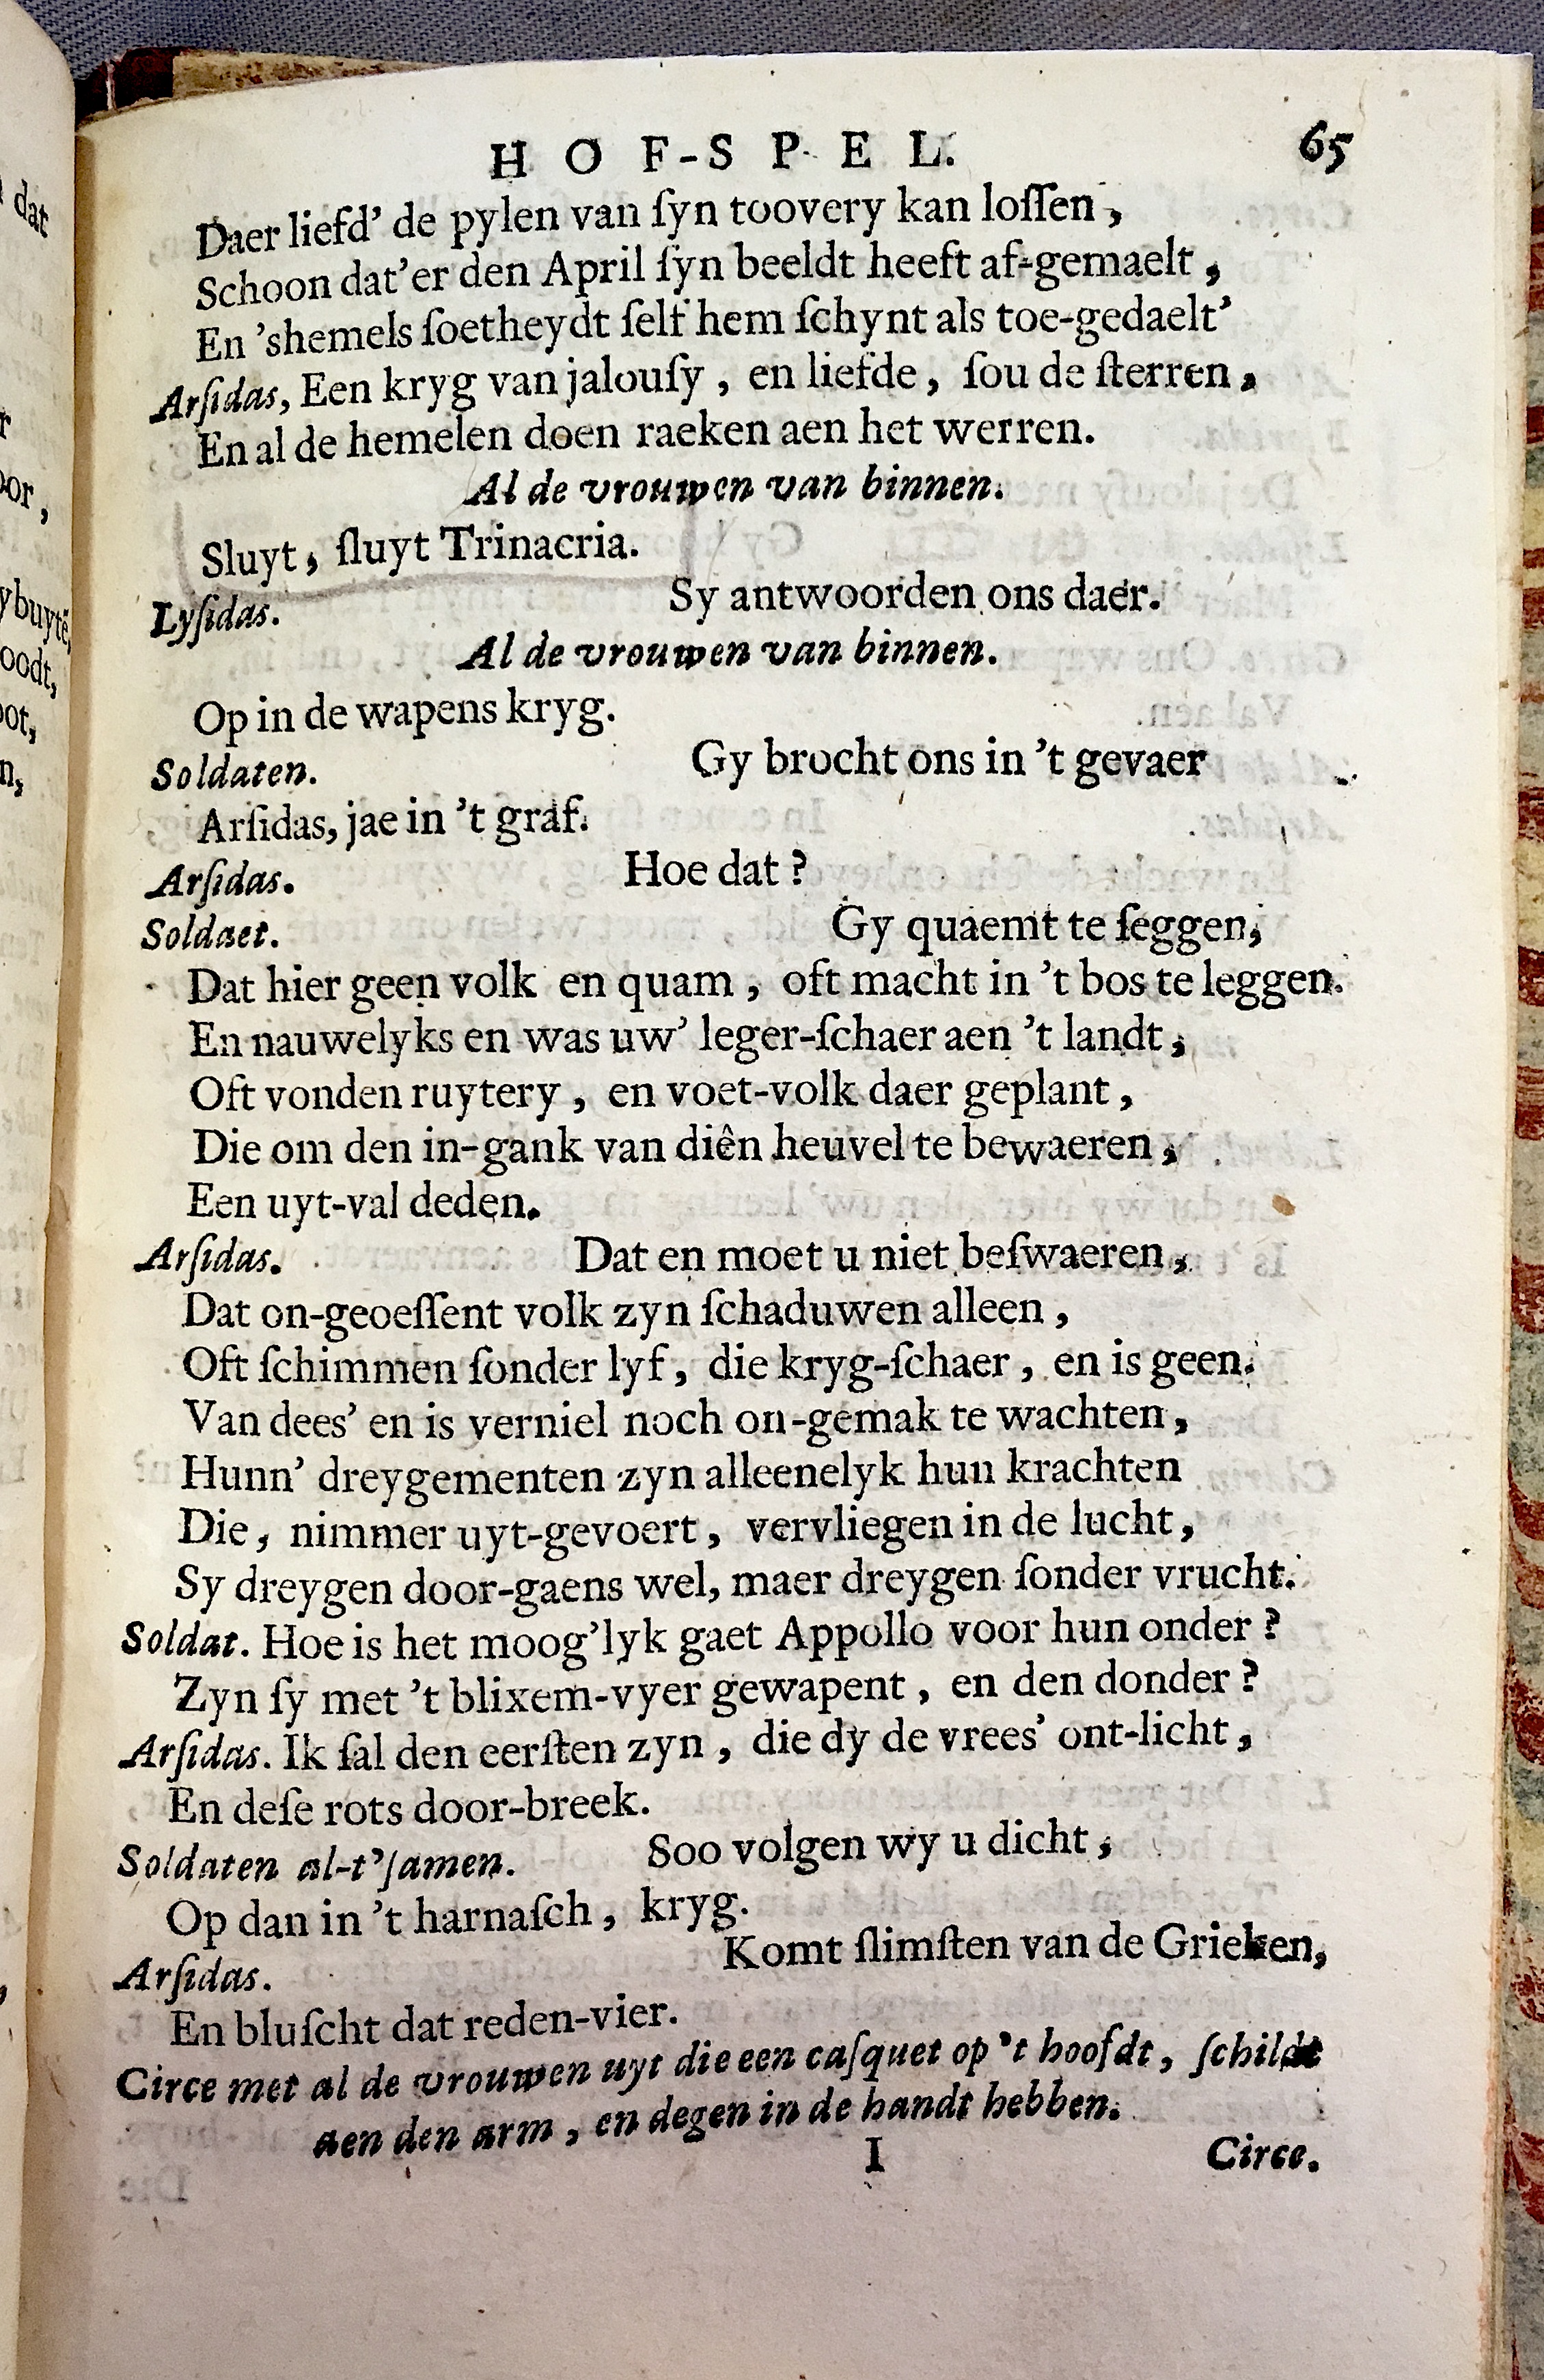 HOF-SPEL. 65
Daer liefd' de pylen van ſyn toovery kan loſſen,
Schoon dat'er den April ſyn beeldt heeft af-gemaelt,
En 'shemels ſoetheydt ſelf hem ſchynt als toe-gedaelt'
Arſidas, Een kryg van jalouſy, en liefde, ſou de ſterren,
En al de hemelen doen raeken aen het werren.
Al de vrouwen van binnen.
Sluyt, ſluyt Trinacria.
Lyſidas. Sy antwoorden ons daer.
Al de vrouwen van binnen.
Op in de wapens kryg.
Soldaten. Gy brocht ons in 't gevaer
Arſidas, jae in 't graf.
Arſidas. Hoe dat?
Soldaet. Gy quaemt te ſeggen,
Dat hier geen volk en quam, oft macht in 't bos te leggen.
En nauwelyks en was uw' leger-ſchaer aen 't landt,
Oft vonden ruytery, en voet-volk daer geplant,
Die om den in-gank van diên heuvel te bewaeren,
Een uyt-val deden.
Arſidas. Dat en moet u niet beſwaeren,
Dat on-geoeſſent volk zyn ſchaduwen alleen,
Oft ſchimmen ſonder lyf, die kryg-ſchaer, en is geen.
Van dees' en is verniel noch on-gemak te wachten,
Hunn' dreygementen zyn alleenelyk hun krachten
Die, nimmer uyt-gevoert, vervliegen in de lucht,
Sy dreygen door-gaens wel, maer dreygen ſonder vrucht.
Soldat. Hoe is het moog'lyk gaet Appollo voor hun onder?
Zyn ſy met 't blixem-vyer gewapent, en den donder?
Arſidas. Ik ſal den eerſten zyn, die dy de vrees' ont-licht,
En deſe rots door-breek.
Soldaten al-t'ſamen. Soo volgen wy u dicht,
Op dan in 't harnaſch, kryg.
Arſidas. Komt ſlimſten van de Grieken,
En bluſcht dat reden-vier.
Circe met al de vrouwen uyt die een caſquet op 't hoofdt, ſchildt
aen den arm, en degen in de handt hebben.
I Circe.
dat
r
oor,
ybuytē,
oodt,
oot,
n,